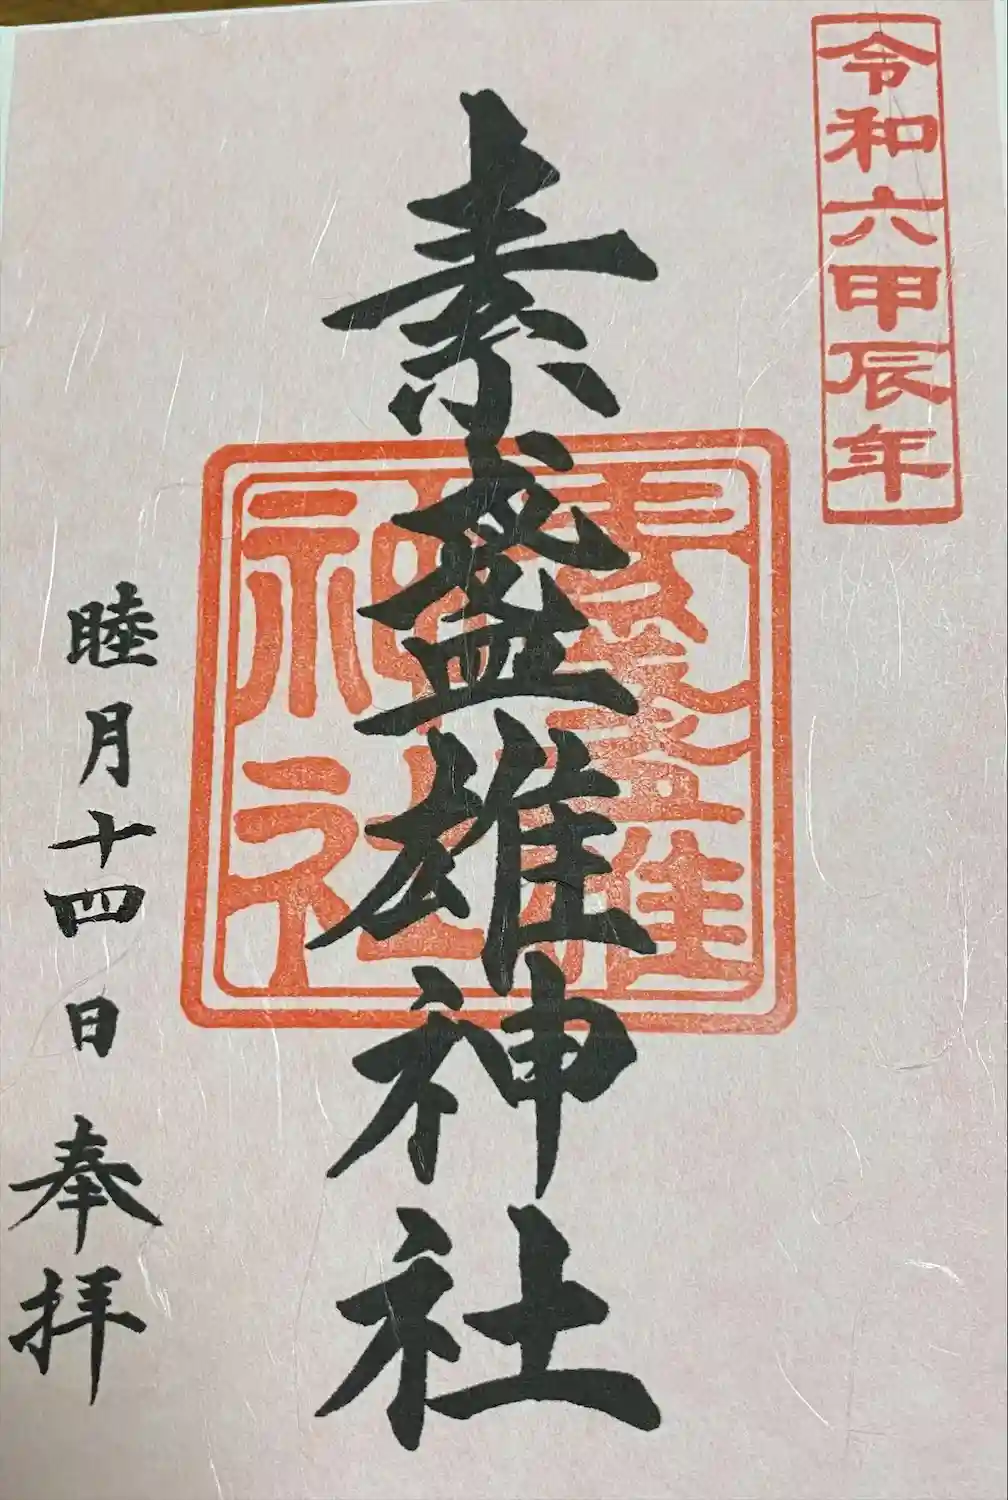 令和六甲辰年
素盞雄神社
素盞雄
神社
睦月十四日 奉拝